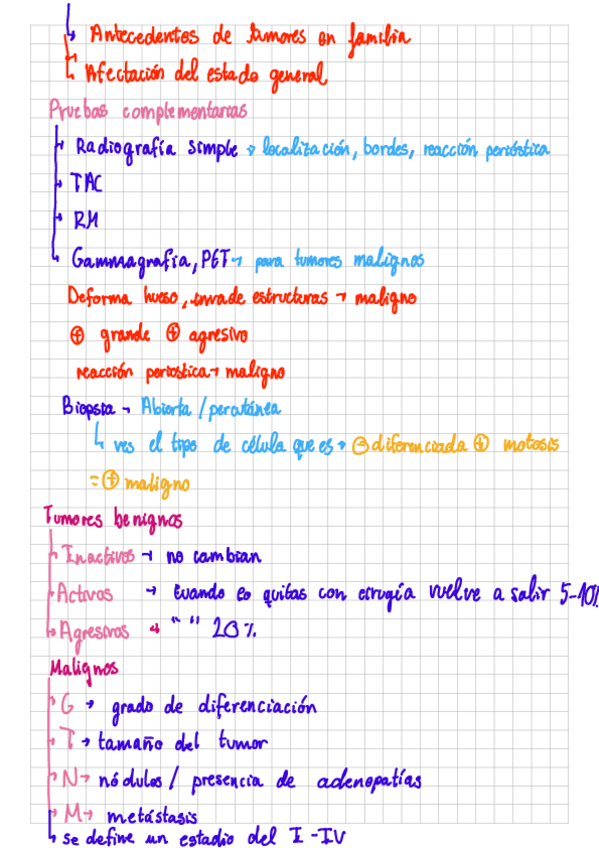 ↳ Antecedentes de tumores en familia
↳ Afectación del estado general
Pruebas complementarias
→ Radiografía simple → localización, bordes, reacción perióstica
→ TAC
→ RM
↳ Gammagrafía, PET → para tumores malignos
Deforma hueso, invade estructuras → maligno
⊕ grande ⊕ agresivo
reacción periostica → maligno
Biopsia → Abierta / percutánea
↳ ves el tipo de célula que es → ⊖ diferenciada ⊕ mitosis
= ⊕ maligno
Tumores benignos
→ Inactivos → no cambian
→ Activos → cuando lo quitas con cirugía vuelve a salir 5-10%
↳ Agresivos → " " 20%
Malignos
→ G → grado de diferenciación
→ T → tamaño del tumor
→ N → nódulos / presencia de adenopatías
→ M → metástasis
↳ se define un estadio del I - IV